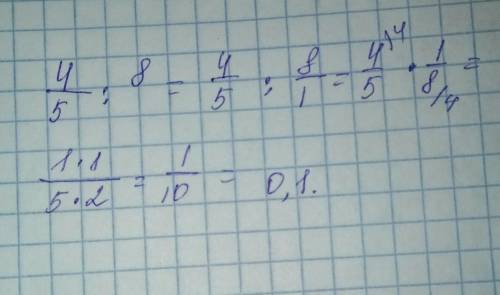 4/5 : 8 = 4/5 : 8/1 = 4/5⁾⁴ · 1/8/₄ =
1·1/5·2 = 1/10 = 0,1.